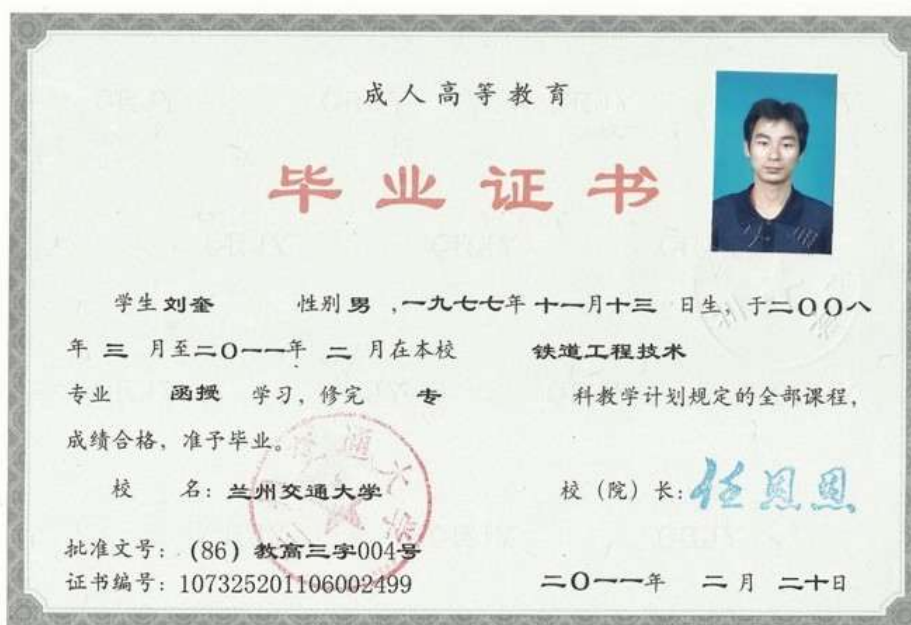 成人高等教育
毕业证书
学生 刘奎 性别 男 ,一九七七年 十一月十三 日生, 于二〇〇八
年 三 月至二〇一一年 二 月在本校 铁道工程技术
专业 函授 学习, 修完 专 科教学计划规定的全部课程,
成绩合格, 准予毕业。
校 名: 兰州交通大学 校 (院) 长: 任恩恩
批准文号: (86) 教高三字004号
证书编号: 107325201106002499 二〇一一年 二 月 二十日